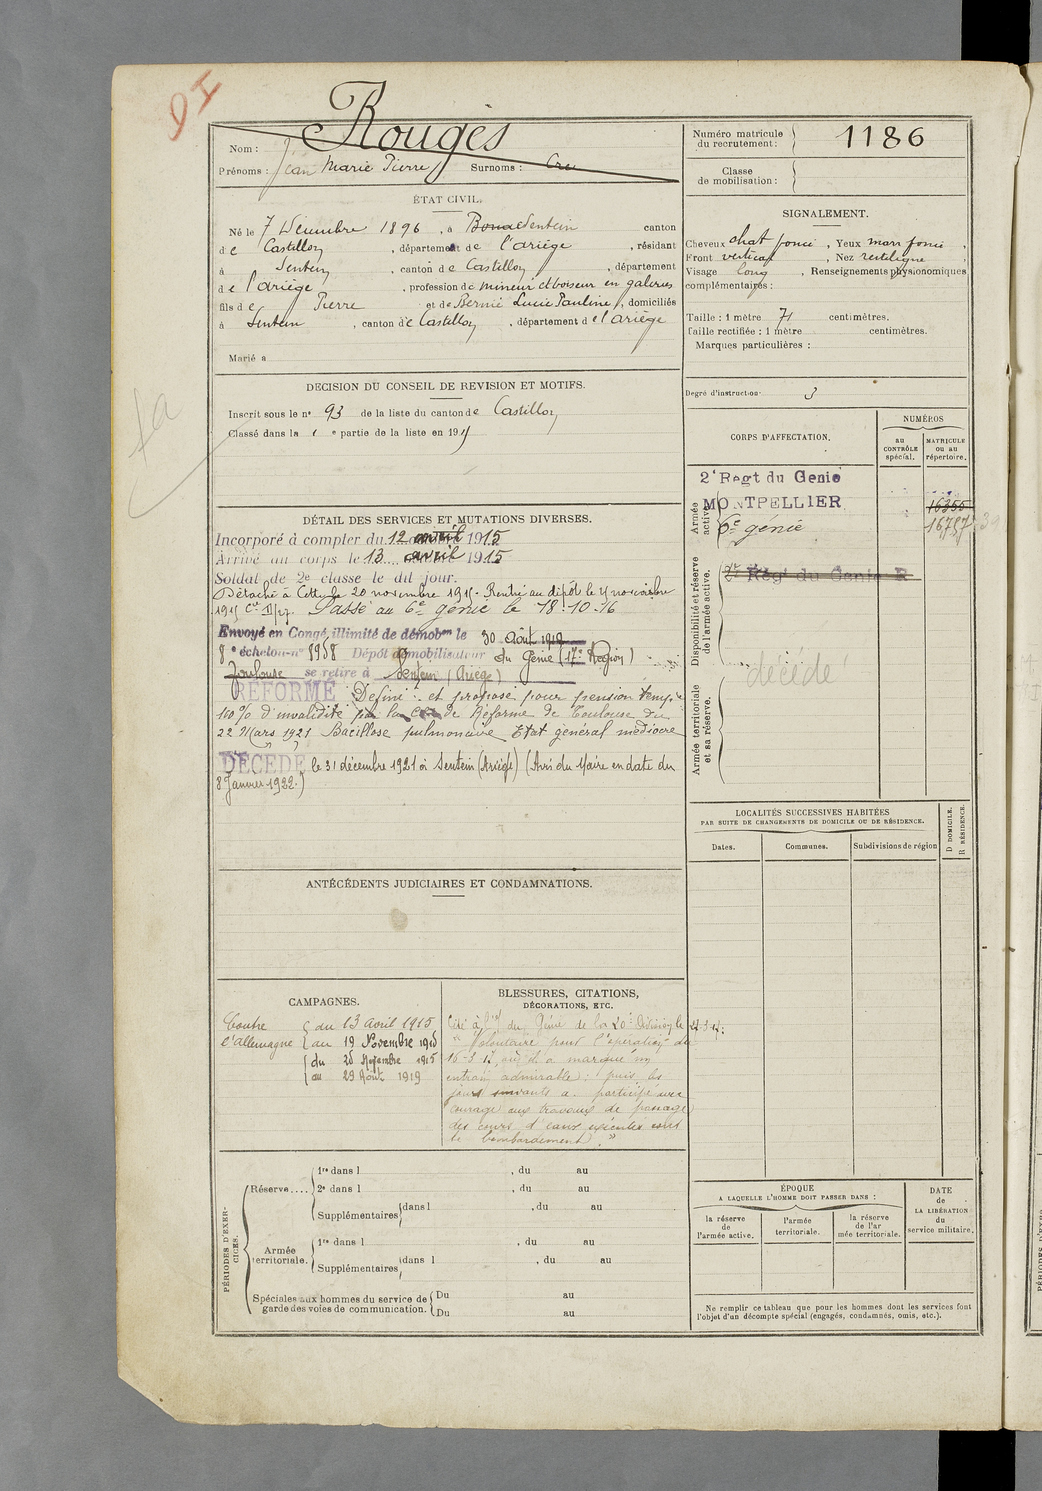 Rougès
Nom :
Prénoms : Jean Marie Pierre Surnoms :
Numéro matricule du recrutement : 1186
Classe de mobilisation :
ÉTAT CIVIL.
Né le 7 Décembre 1896, à Sentein canton
de Castillon, département de l'ariège, résidant
à Sentein, canton de Castillon, département
de l'ariège, profession de mineur et boiseur en galeries
fils de Pierre et de Bernié Lucie Pauline, domiciliés
à Sentein, canton de Castillon, département de l'ariège
Marié à
SIGNALEMENT.
Cheveux chat foncé, Yeux marr foncé,
Front vertical, Nez rectiligne,
Visage long, Renseignements physionomiques
complémentaires :
Taille : 1 mètre 71 centimètres.
Taille rectifiée : 1 mètre centimètres.
Marques particulières :
Degré d'instruction : 3
DECISION DU CONSEIL DE REVISION ET MOTIFS.
Inscrit sous le n° 93 de la liste du canton de Castillon
Classé dans la 1e partie de la liste en 1915
CORPS D'AFFECTATION.
NUMÉROS
au CONTRÔLE spécial.
MATRICULE ou au répertoire.
Armée active.
2e Regt du Genie
MONTPELLIER
16355
6e génie
16787
Disponibilité et réserve de l'armée active.
2e Régt du Genie R
décédé
Armée territoriale et sa réserve.
DÉTAIL DES SERVICES ET MUTATIONS DIVERSES.
Incorporé à compter du 12 avril 1915
Arrivé au corps le 13 avril 1915
Soldat de 2e classe le dit jour.
Détaché à Cette le 20 novembre 1915. Rentré au dépôt le novembre
1915 Passé au 6e génie le 18.10.16
Envoyé en Congé illimité de démobon le 30 Août 1919
8e échelon n° 8958 Dépôt démobilisateur du Génie (17e Région)
Toulouse se retire à Sentein (Ariège)
RÉFORMÉ Défini et proposé pour pension temp.
100% d'invalidité par la de Réforme de Toulouse du
22 Mars 1921 Bacillose pulmonaire Etat général médiocre
DÉCÉDÉ le 31 décembre 1921 à Sentein (Ariège) (Avis du Maire en date du
8 Janvier 1922.)
LOCALITÉS SUCCESSIVES HABITÉES
PAR SUITE DE CHANGEMENTS DE DOMICILE OU DE RÉSIDENCE.
Dates.
Communes.
Subdivisions de région
D DOMICILE.
R RÉSIDENCE.
ANTÉCÉDENTS JUDICIAIRES ET CONDAMNATIONS.
CAMPAGNES.
Contre du 13 Avril 1915
l'Allemagne au 19 Novembre 1915
du 20 Novembre 1915
au 29 Août 1919
BLESSURES, CITATIONS,
DÉCORATIONS, ETC.
Cité à du Génie de la 20e Division le
"Volontaire pour l'opération du
16-3-17, où il a marqué un
entrain admirable; puis les
jours suivants a participé avec
courage aux travaux de passage
des cours d'eaux exécutés sous
le bombardement."
PÉRIODES D'EXERCICES.
Réserve.... 1re dans l , du au
2e dans l , du au
Supplémentaires dans l , du au
Armée territoriale. 1re dans l , du au
Supplémentaires dans l , du au
Spéciales aux hommes du service de garde des voies de communication. Du au
Du au
ÉPOQUE
A LAQUELLE L'HOMME DOIT PASSER DANS :
la réserve de l'armée active.
l'armée territoriale.
la réserve de l'armée territoriale.
DATE de LA LIBÉRATION du service militaire.
Ne remplir ce tableau que pour les hommes dont les services font
l'objet d'un décompte spécial (engagés, condamnés, omis, etc.).